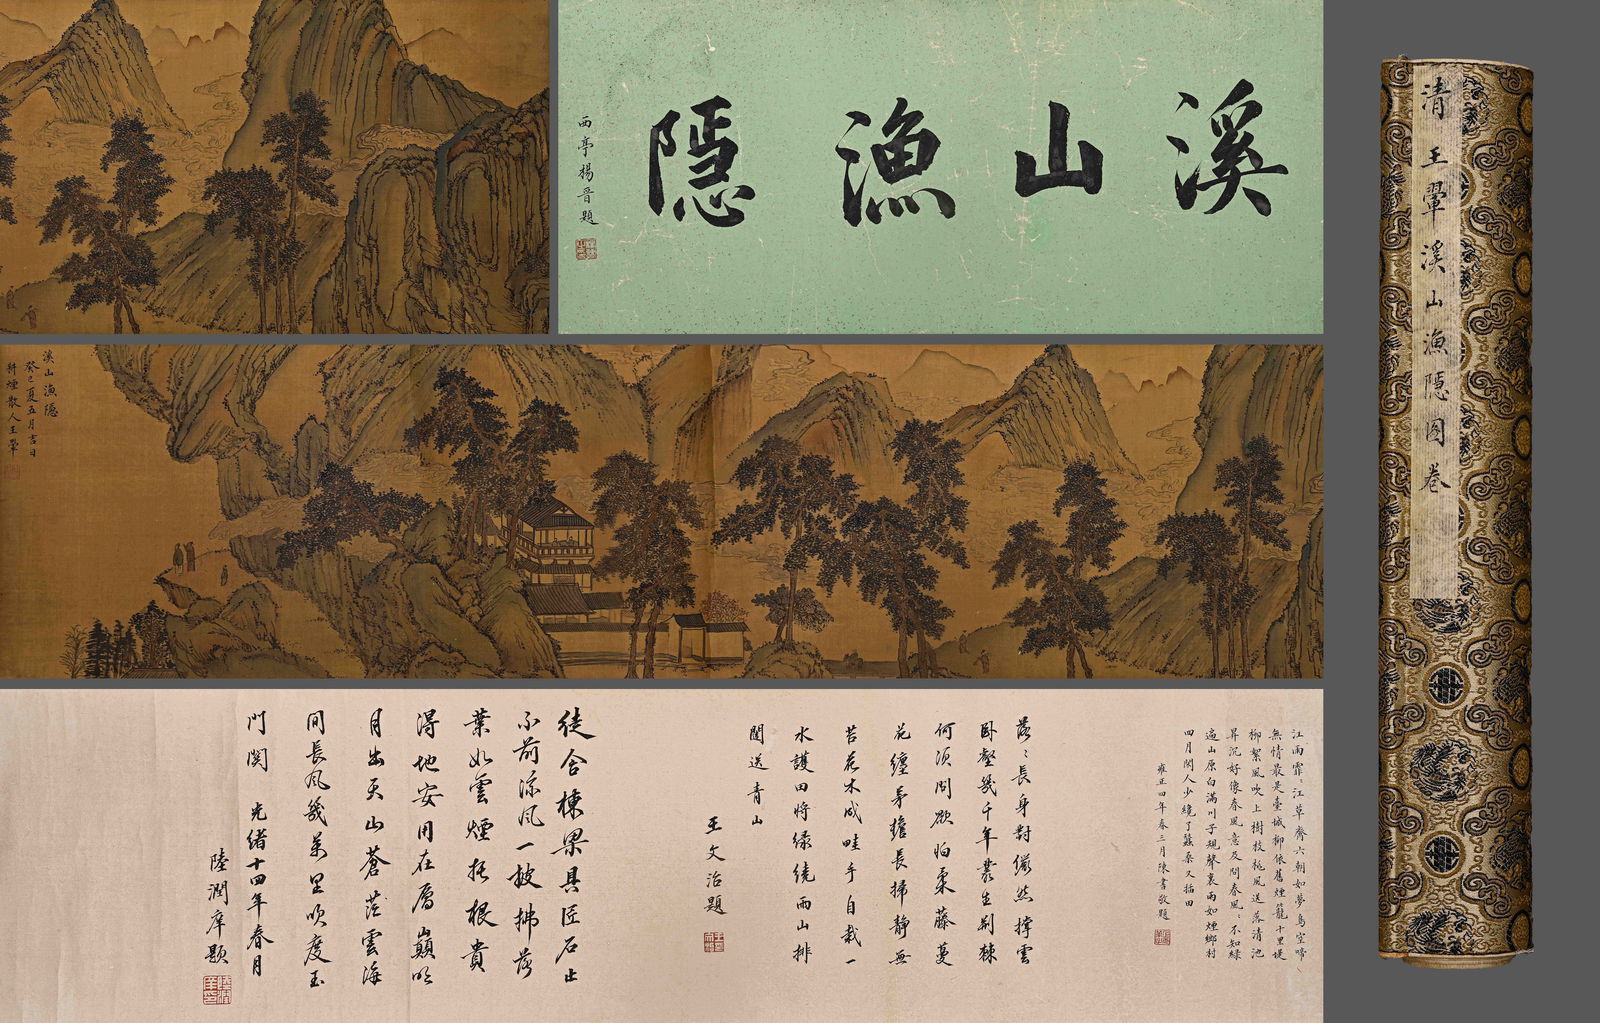 溪山漁隱
西亭楊晉題
清 王翬溪山漁隱圖卷
溪山漁隱
癸巳夏五月吉日
耕煙散人王翬
江雨霏〻江草齊六朝如夢鳥空啼
無情最是臺城柳依舊煙籠十里堤
柳絮風吹上樹枝桃風送落清池
昇沉好像春風意及問春風〻不知綠
遍山原白滿川子規聲裏雨如煙鄉村
四月閑人少纔了蠶桑又插田
雍正四年春三月陳書敬題
落〻長身對儼然撐雲
臥壑幾千年叢生荊棘
何須問欲怕柔藤蔓
花纏茅檐長掃靜無
苔花木成畦手自栽一
水護田將綠繞兩山排
闥送青山
王文治題
徒含棟梁具匠石止
不前涼風一披拂落
葉如雲煙托根貴
得地安用在層巔明
月出天山蒼茫雲海
間長風幾萬里吹度玉
門關 光緒十四年春月
陸潤庠題